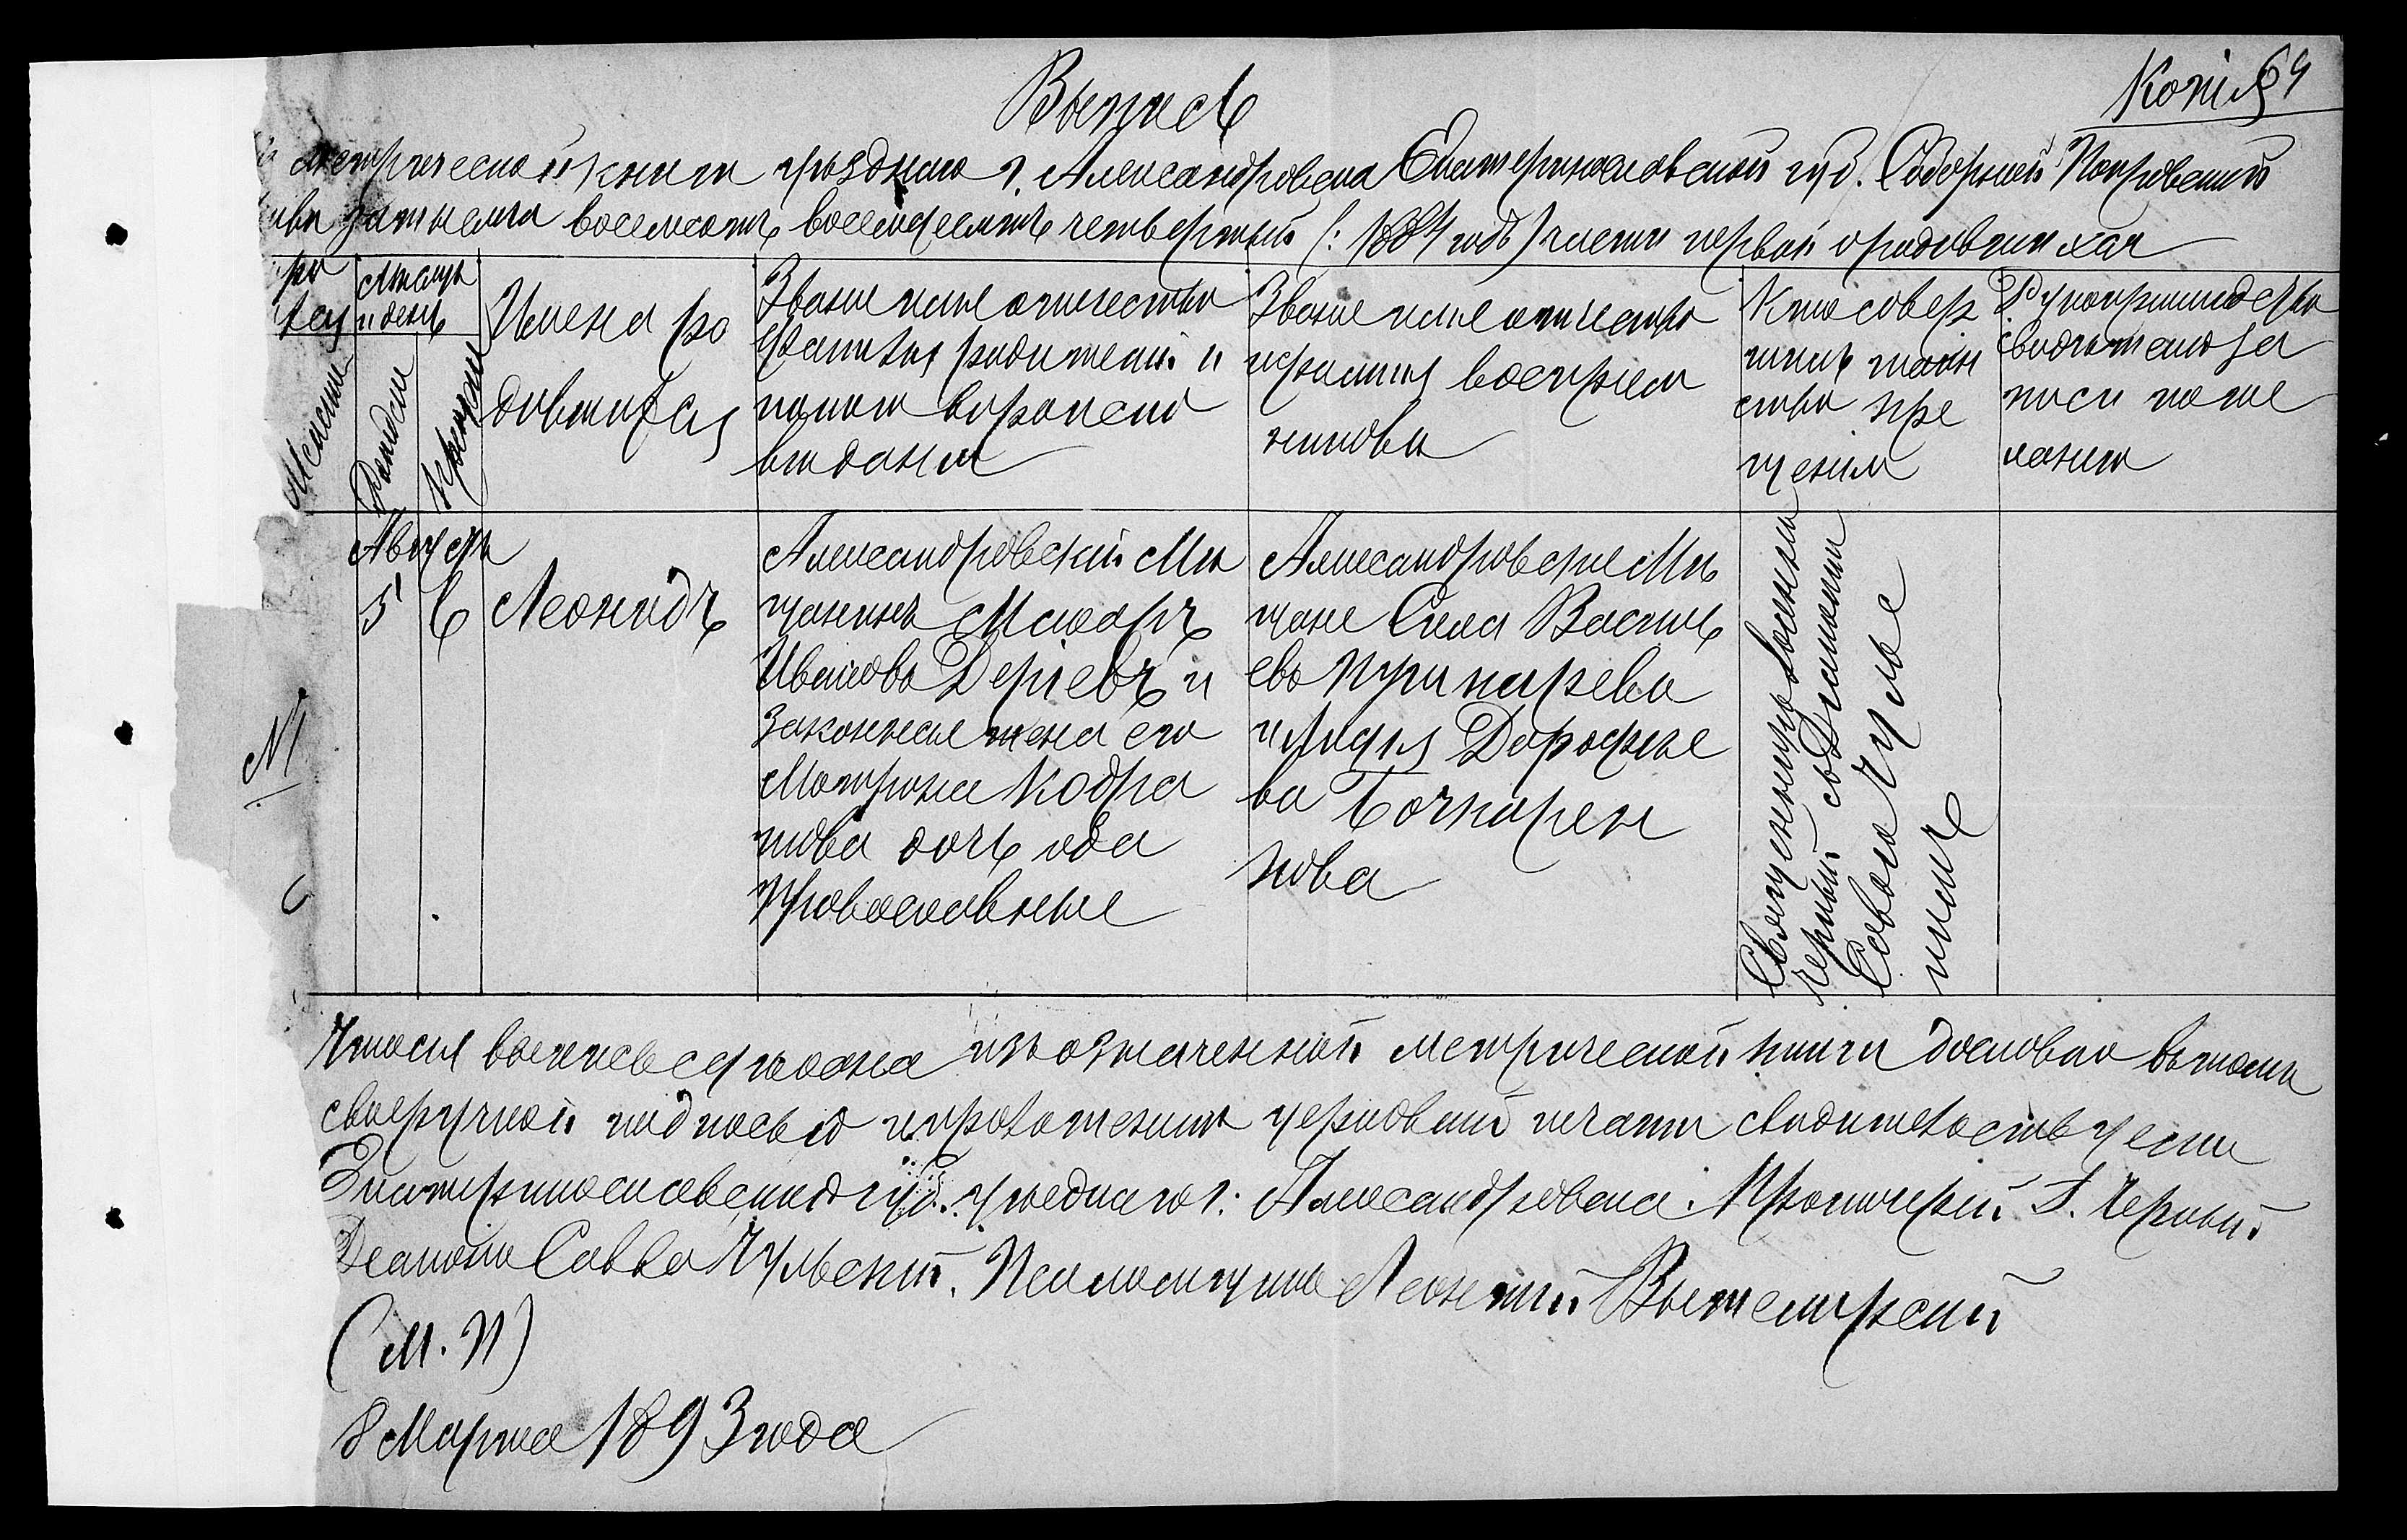 Копія 64
Выпись
метрической книги уѣзднаго г. Александровска Екатеринославской губ. Соборной Покровской
за тысяча восемьсотъ восемьдесятъ четвертый (: 1884 годъ) части первой о родившихся
Мѣсяцъ и день
Рожденія
Крещенія
Имена ро
дившихся
Званіе имя отчество
фамилія родителей и
какого вѣроисповѣ
ведания
Званіе имя отчество
и фамилія воспріем
никовъ
Кто совер
шилъ таин
ство кре
щенія
Рукоприкладство
свидѣтелей за
писи по же
ланію
Августъ
5 6 Леонидъ
Александровскій Мѣ
щанинъ Макаръ
Ивановъ Дергевъ и
законная жена его
Матрона Кодра
това дочь оба
Православные
Александровскіе Мѣ
щане Сила Василь
евъ Пушкарева
и Лидія Дорофѣе
ва Бочкарен
кова
Священникъ
Черный съ Діакономъ
Саввою Чуль
скимъ
№1
Что сія выпись съ сдѣлана изъ означенной метрической книги дословно въ томъ
своеручной подписью и приложеніемъ церковной печати свидѣтельствуемъ
Екатеринославской губ. уѣзднаго г. Александровска. Протоіерей Г. Черный.
Діаконъ Савва Чульскій. Псаломщикъ Леонтій
(М. П)
8 Марта 1893 года